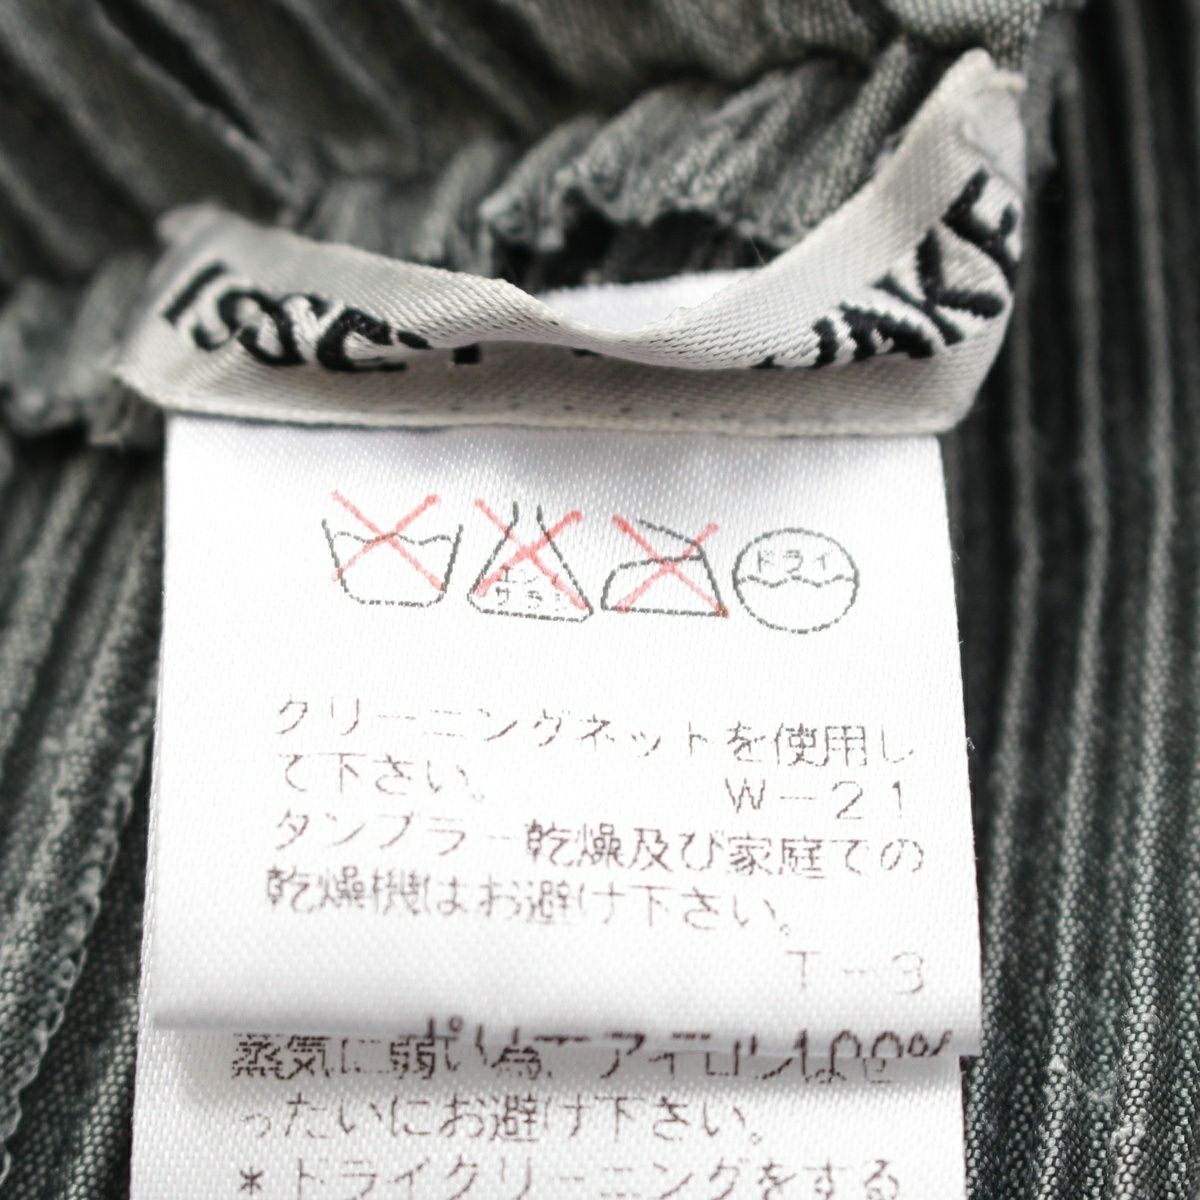 ISSEY MIYAKE
エンソ
サラシ
ドライ
クリーニングネットを使用し
て下さい。 W-21
タンブラー乾燥及び家庭での
乾燥機はお避け下さい。
T-3
ポリエ 100%
蒸気に弱い為、アイロンはぜ
ったいにお避け下さい。
*ドライクリーニングをする